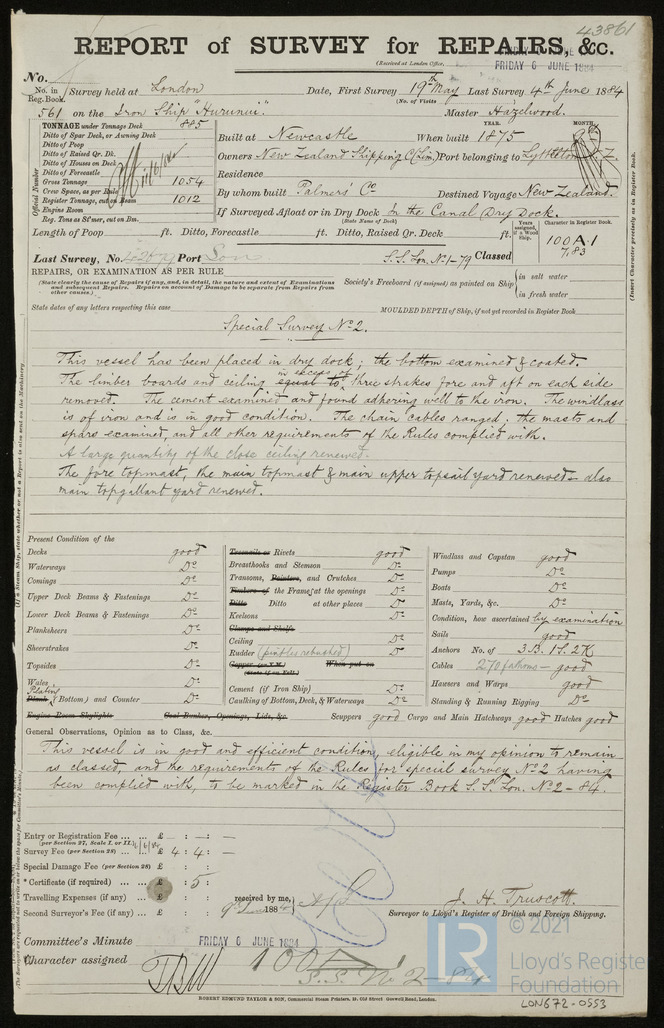 43861
REPORT of SURVEY for REPAIRS, &c.
(Received at London Office, FRIDAY 6 JUNE 1884
No.
No. in Reg. Book. Survey held at London Date, First Survey 19th May Last Survey 4th June 1884
(No. of Visits)
561 on the Iron Ship "Hurunui" Master Hazelwood.
TONNAGE under Tonnage Deck 885
Ditto of Spar Deck, or Awning Deck
Ditto of Poop
Ditto of Raised Qr. Dk.
Ditto of Houses on Deck
Ditto of Forecastle
Gross Tonnage 1054
Crew Space, as per Rule
Register Tonnage, cut on Beam 1012
Engine Room
Reg. Tons as St'mer, cut on Bm.
Official Number
Built at Newcastle When built 1875 YEAR. MONTH.
Owners New Zealand Shipping C (Lim) Port belonging to Lyttleton N.Z.
Residence
By whom built Palmers' Co Destined Voyage New Zealand.
If Surveyed Afloat or in Dry Dock In the Canal Dry Dock.
(State Name of Dock)
Length of Poop ft. Ditto, Forecastle ft. Ditto, Raised Qr. Deck ft.
Years assigned, if a Wood Ship. Character in Register Book.
100 A.1
7,83
Last Survey, No. Port Lon S.S. Lon. No1-79 Classed
REPAIRS, OR EXAMINATION AS PER RULE
(State clearly the cause of Repairs if any, and, in detail, the nature and extent of Examinations and subsequent Repairs. Repairs on account of Damage to be separate from Repairs from other causes.)
Society's Freeboard (if assigned) as painted on Ship in salt water
in fresh water
State dates of any letters respecting this case MOULDED DEPTH of Ship, if not yet recorded in Register Book
Special Survey No 2.
This vessel has been placed in dry dock; the bottom examined & coated.
The limber boards and ceiling equal to in excess of three strakes fore and aft on each side
removed. The cement examined and found adhering well to the iron. The windlass
is of iron and is in good condition. The chain cables ranged; the masts and
spars examined, and all other requirements of the Rules complied with.
A large quantity of the close ceiling renewed.
The fore topmast, the main topmast & main upper topsail yard renewed - also
main topgallant yard renewed.
Present Condition of the
Decks good
Waterways Do
Comings Do
Upper Deck Beams & Fastenings Do
Lower Deck Beams & Fastenings Do
Planksheers Do
Sheerstrakes Do
Topsides Do
Wales Do
Plating
Plank (Bottom) and Counter Do
Engine Room Skylights Coal Bunker, Openings, Lids, &c.
Treenails or Rivets good
Breasthooks and Stemson Do
Transoms, Pointers, and Crutches Do
Timbers of the Frame at the openings Do
Ditto Ditto at other places Do
Keelsons Do
Clamps and Shelfs
Ceiling Do
Rudder (pintles rebushed) Do
Copper, (or Y.M.) When put on
(State if on Felt)
Cement (if Iron Ship) Do
Caulking of Bottom, Deck, & Waterways Do
Windlass and Capstan good
Pumps Do
Boats Do
Masts, Yards, &c. Do
Condition, how ascertained by examination
Sails good
Anchors No. of 3 B. 1 S. 2 K
Cables 270 fathoms - good
Hawsers and Warps good
Standing & Running Rigging Do
Scuppers good Cargo and Main Hatchways good Hatches good
General Observations, Opinion as to Class, &c.
This vessel is in good and efficient condition, eligible in my opinion to remain
as classed, and the requirements of the Rules for special survey No 2 having
been complied with, to be marked in the Register Book S.S. Lon. No 2-84.
Entry or Registration Fee £ : - : -
(per Section 27, Scale I. or II.)
Survey Fee (per Section 28) £ 4 : 4 : -
Special Damage Fee (per Section 28) £ : :
*Certificate (if required) £ : 5 :
Travelling Expenses (if any) £ : : received by me,
Second Surveyor's Fee (if any) £ : : 9th June 1884
J. H. Truscott.
Surveyor to Lloyd's Register of British and Foreign Shipping.
Committee's Minute FRIDAY 6 JUNE 1884
Character assigned 100A
S.S. No 2-84
ROBERT EDMUND TAYLOR & SON, Commercial Steam Printers, 19, Old Street Goswell Road, London.
LON672-0553
(Insert Character precisely as in Register Book.
© 2021
LR
Lloyd's Register
Foundation